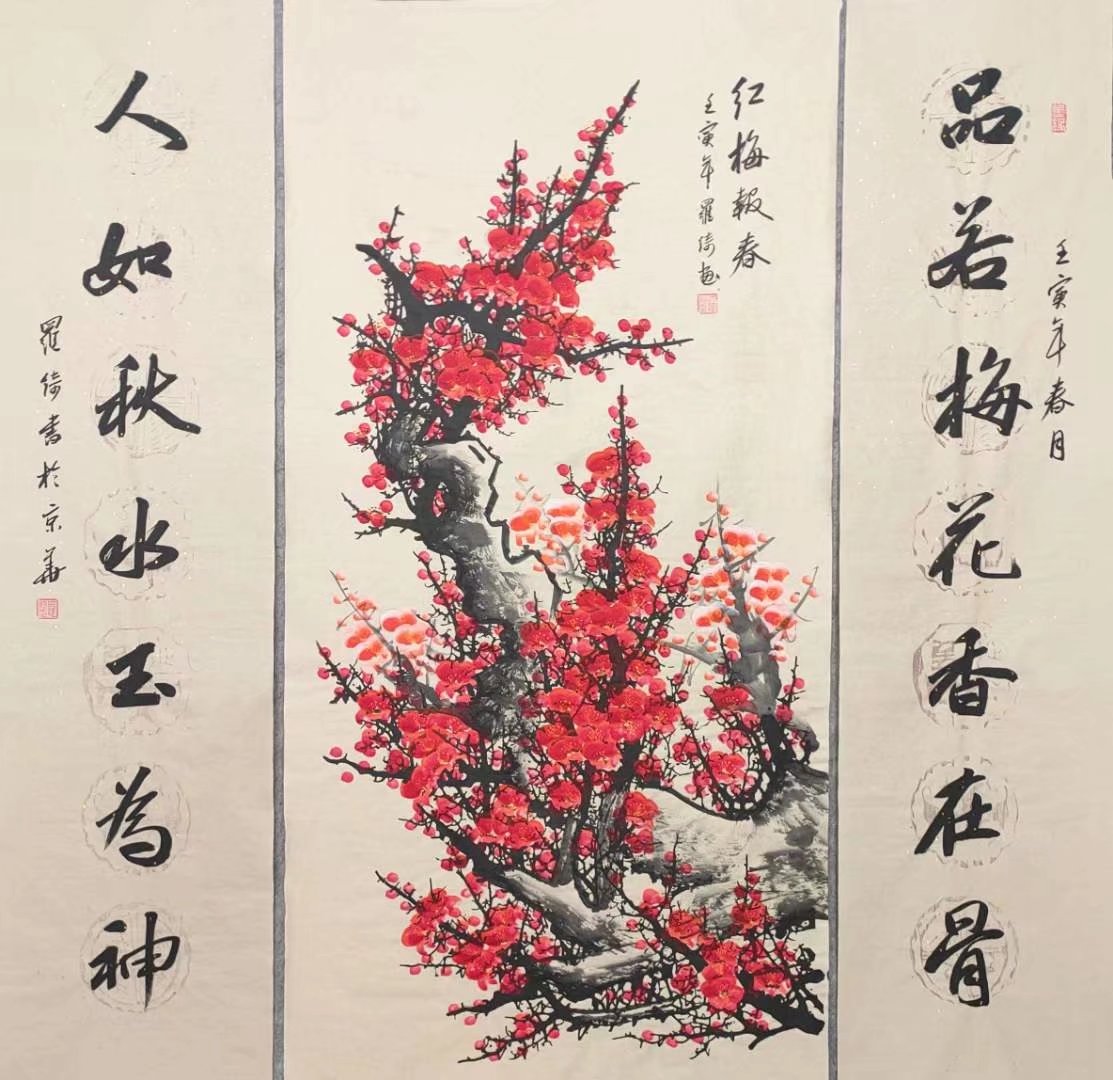 品若梅花香在骨
壬寅年春月
红梅報春
壬寅年羅倚画
人如秋水玉為神
羅倚書於京華